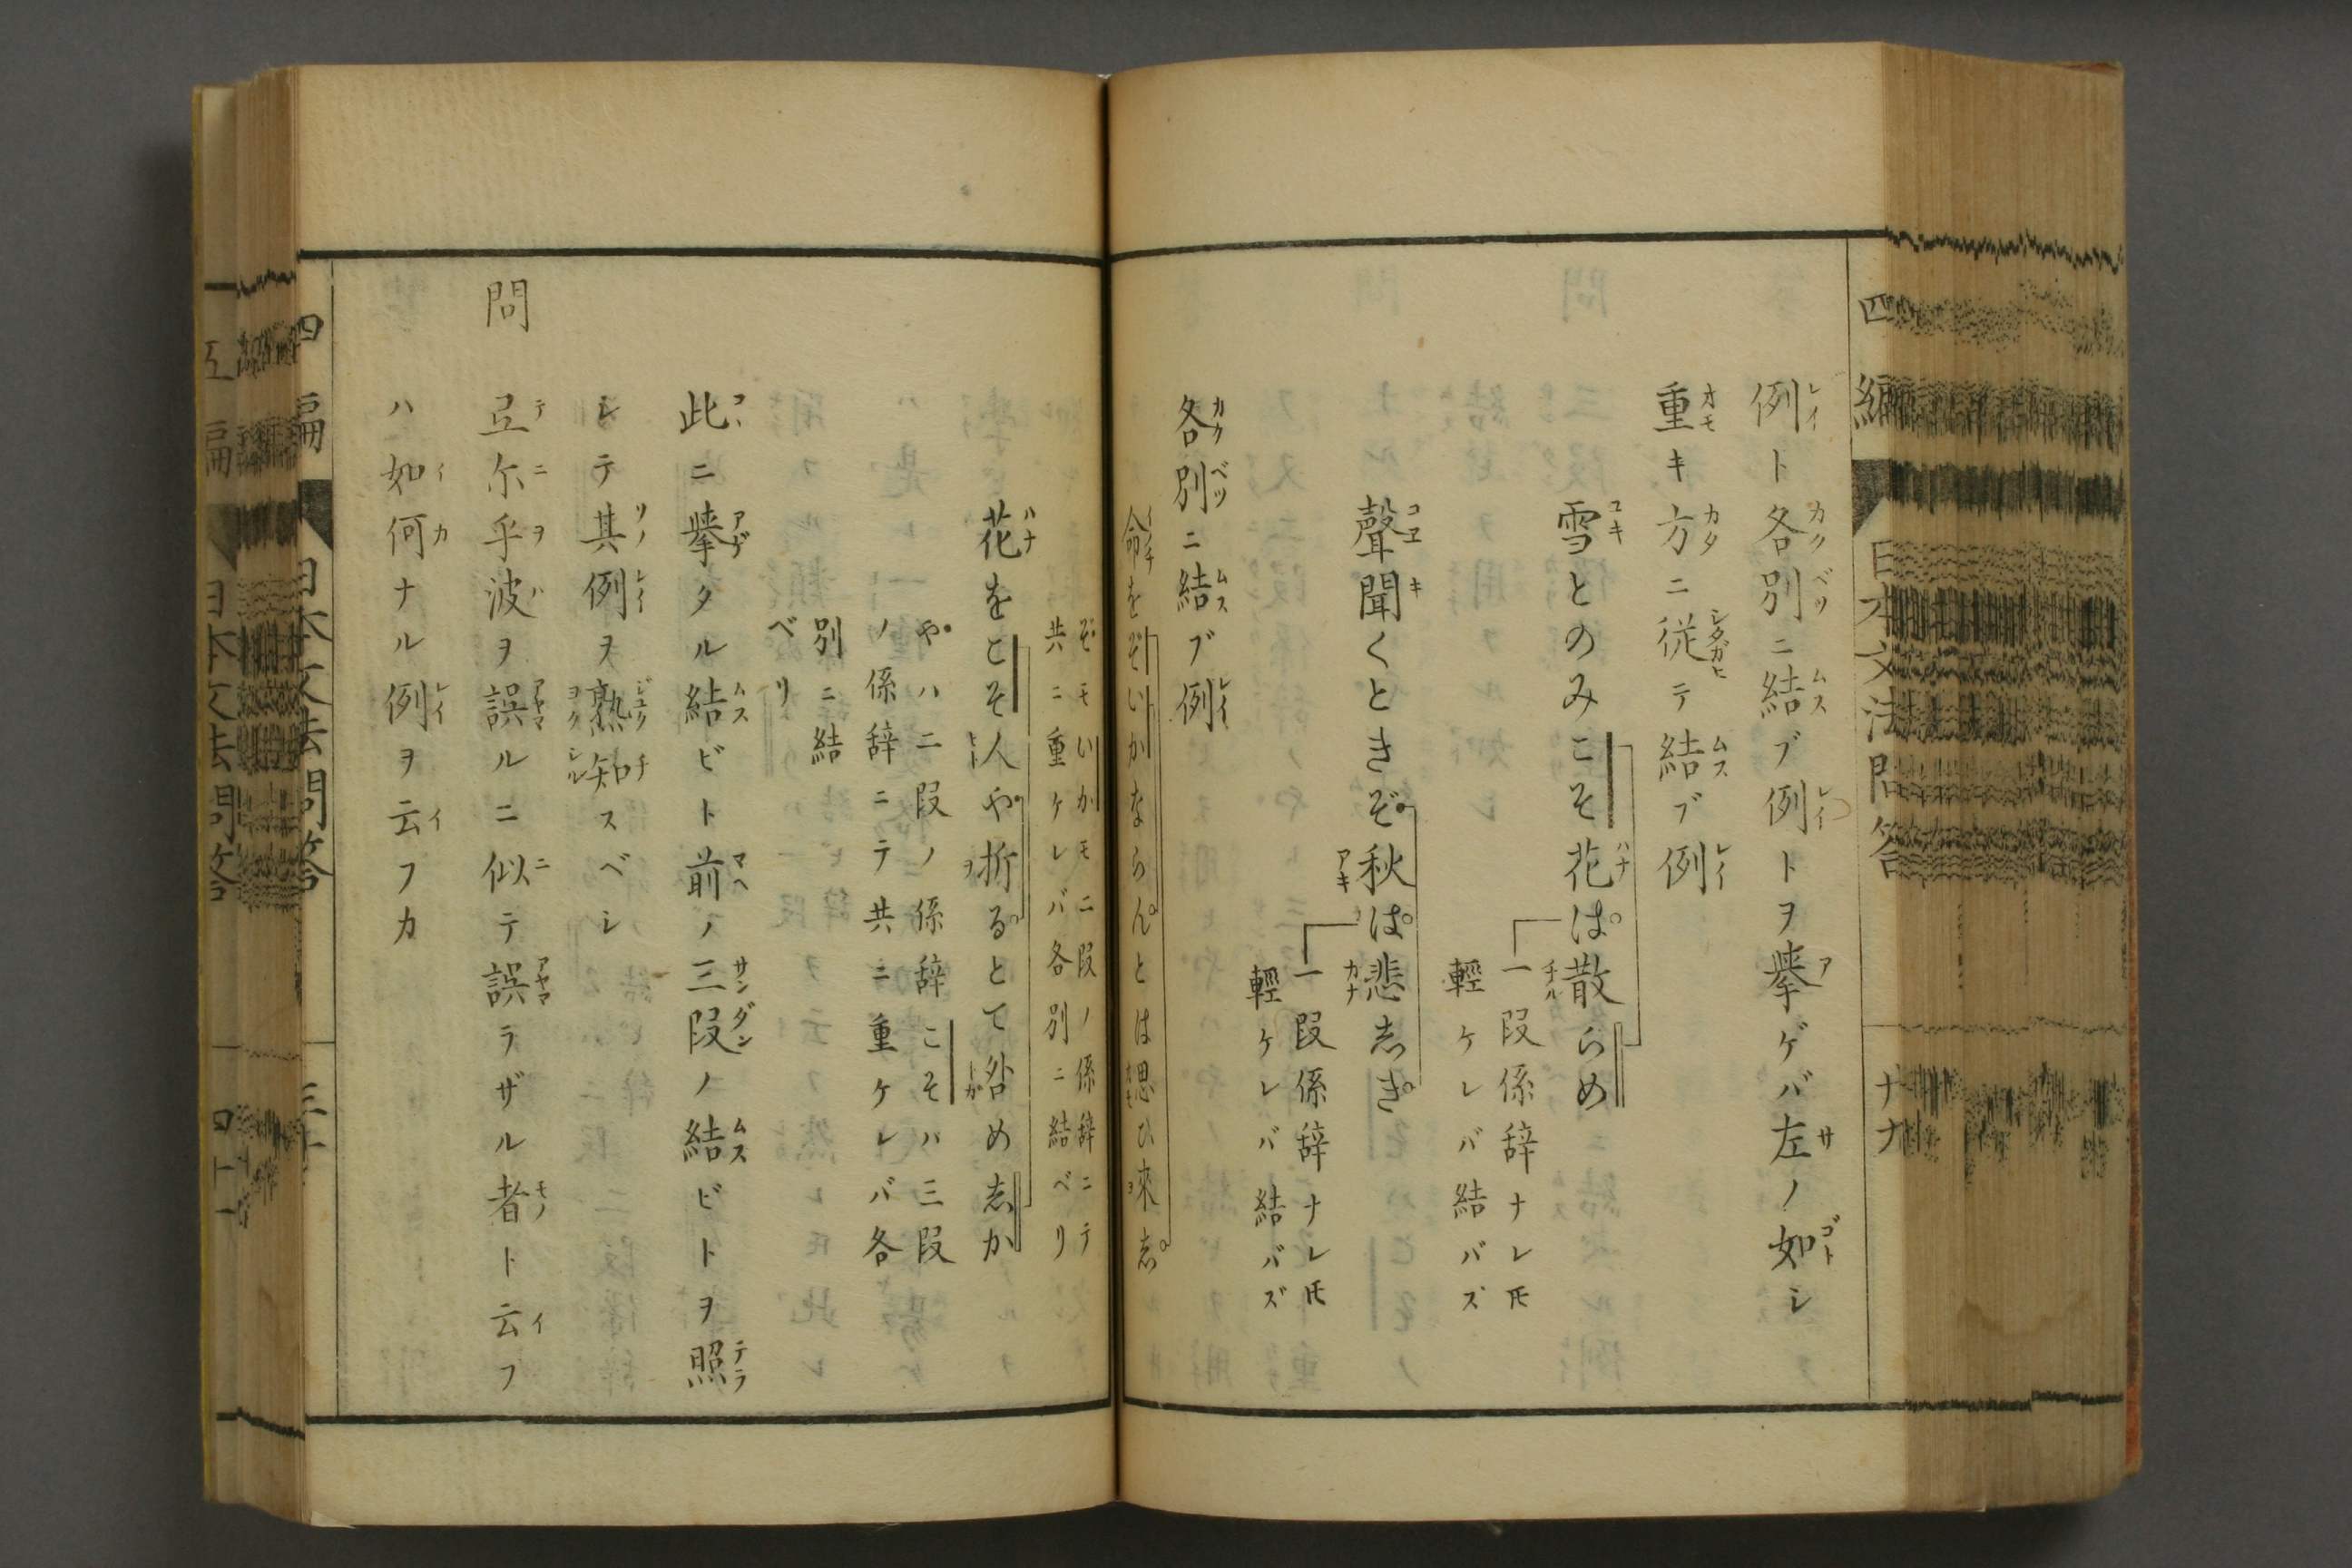 例ト各別ニ結ブ例トヲ擧ゲバ左ノ如シ
重キ方ニ従テ結ブ例
雪とのみこそ花は散らめ
一段係辞ナレ𪜈
輕ケレバ結バズ
聲聞くときぞ秋は悲しき
一段係辞ナレ𪜈
輕ケレバ結バズ
各別ニ結ブ例
命をぞいかならんとは思ひ來し
ぞモいかモ二段ノ係辞ニテ
共ニ重ケレバ各別ニ結ベリ
花をこそ人や折るとて咎めしか
やハ二段ノ係辞こそハ三段
ノ係辞ニテ共ニ重ケレバ各
別ニ結
ベリ
此ニ擧タル結ビト前ノ三段ノ結ビトヲ照
シテ其例ヲ熟知スベシ
問
弖尓乎波ヲ誤ルニ似テ誤ラザル者ト云フ
ハ如何ナル例ヲ云フカ
四編
日本文法問答
四編
日本文法問答
三十
五編
日本文法問答
四十一